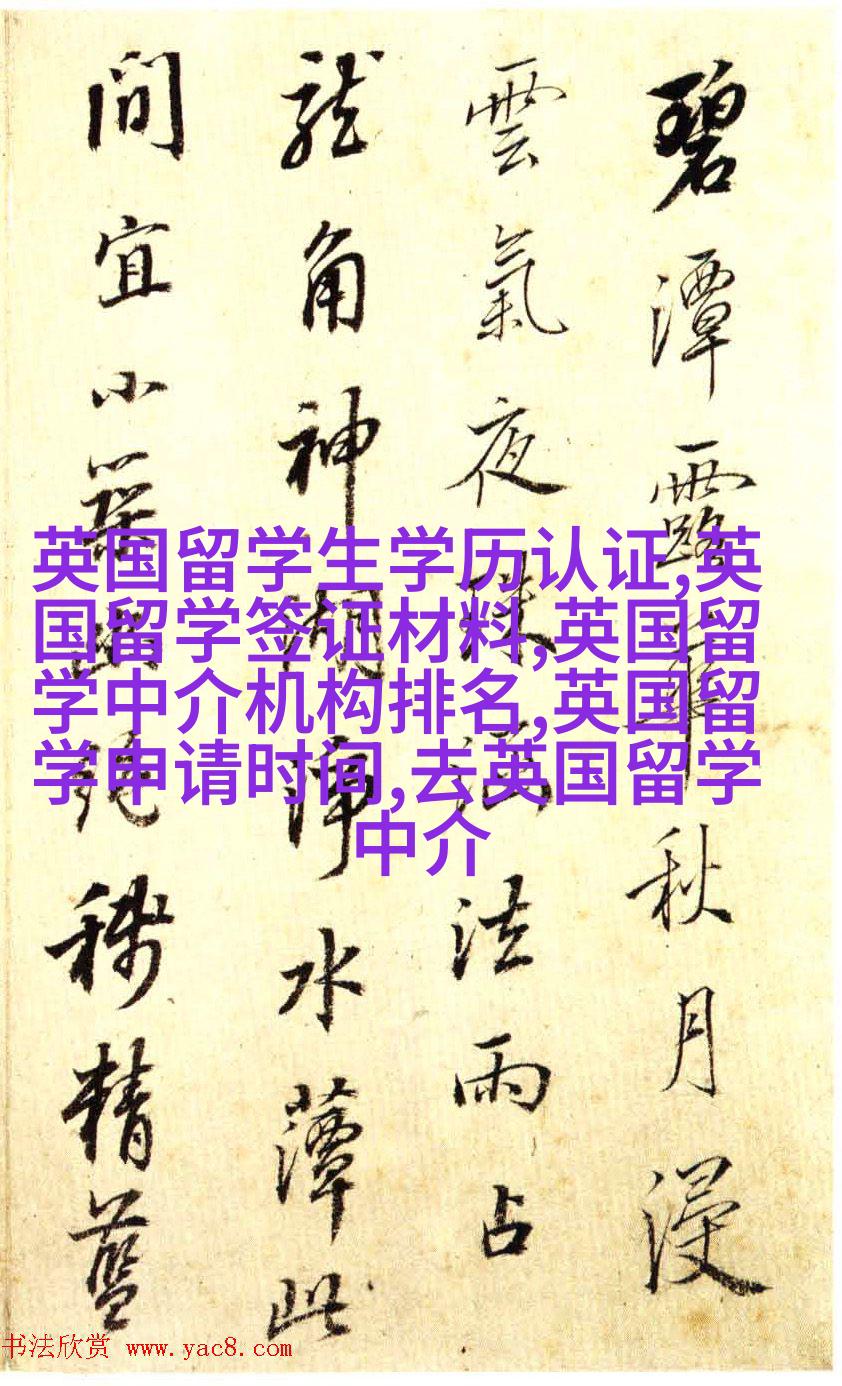 碧潭露華秋月浸
雲氣夜珠涵法雨占
龍角神湖淨水藫此
間宜小築幽絕稱精藍
英国留学生学历认证,英
国留学签证材料,英国留
学中介机构排名,英国留
学申请时间,去英国留学
中介
书法欣赏 www.yac8.com